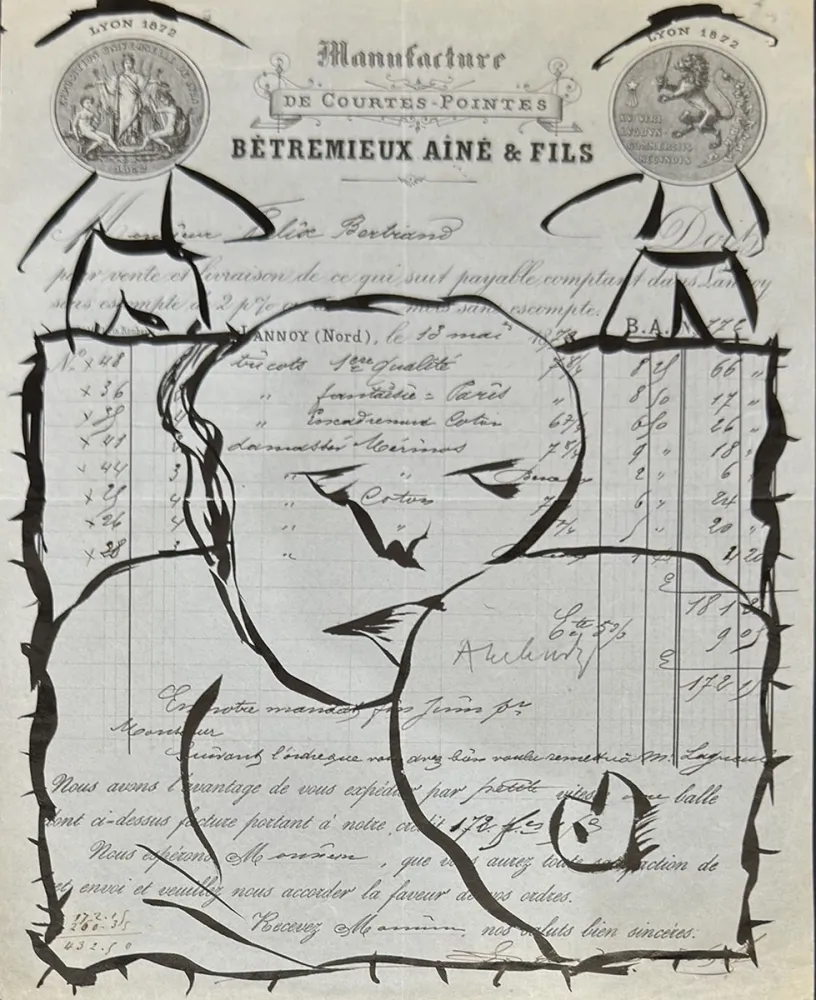 LYON 1872
LYON 1872
EXPOSITION UNIVERSELLE
Manufacture
DE COURTES-POINTES
BÈTREMIEUX AÎNÉ & FILS
Monsieur Félix Bertrand Doit
pour vente et livraison de ce qui suit payable comptant dans Lannoy
sans escompte 2 p% mois sans escompte.
LANNOY (Nord), le 13 mai B.A. N.
N.º x 48 tricots 1ère qualité 8 25 66 "
x 36 " fantaisie = Paris " 8 50 17 "
" Encadrement Coton 6 50 26 "
damassé Mérinos 9 " 18 "
x 44 3 " " 2 " 6 "
x 25 4 " Coton 6 " 24
x 26 4 " " 5 " 20 "
x 28 "
181
9 05
172 15
En notre mandat fin Juin pr
Monsieur
Suivant l'ordre que vous avez bien voulu remettre à Mr
Nous avons l'avantage de vous expédier par petite vitesse une balle
dont ci-dessus facture portant à notre crédit 172
Nous espérons Monsieur, que vous aurez toute satisfaction de
cet envoi et veuillez nous accorder la faveur de vos ordres.
Recevez Monsieur, nos saluts bien sincères.
172.15
260.35
432.50